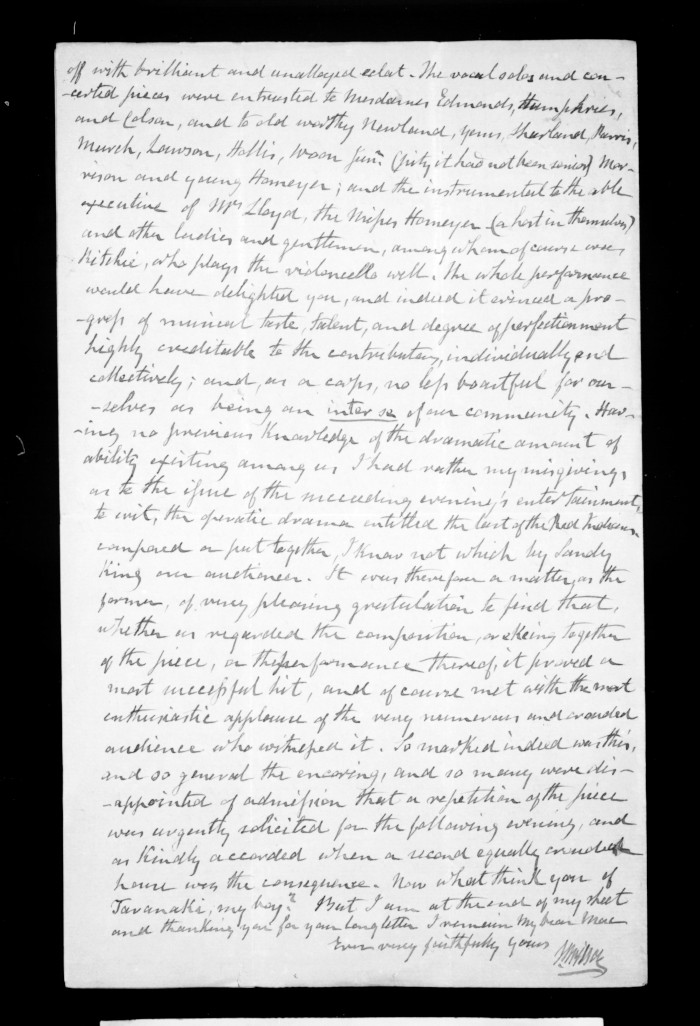 off with brilliant and unalloyed eclat. The vocal solos and con-
-certed pieces were entrusted to Mesdames Edmonds, Humphries,
and Colson, and to old worthy Newland, Yems, Sharland, Burris,
Murch, Lawson, Hollis, Woon Junr. (pity it had not been senior) Mor-
rison and young Homeyer; and the instrumental to the able
executive of Mrs Lloyd, the Misses Homeyer (a host in themselves)
and other ladies and gentlemen, among whom of course was
Ritchie, who plays the violoncello well. The whole performance
would have delighted you, and indeed it evinced a pro-
-gress of musical taste, talent, and degree of perfectionment
highly creditable to the contributary, individually and
collectively; and, as a corps, no less boastful for our-
-selves as being an inter se of our community. Hav-
-ing no previous knowledge of the dramatic amount of
ability existing among us I had rather my misgivings
as to the issue of the succeeding evening's entertainment,
to wit, the operatic drama entitled the last of the Red Indians
composed or put together, I know not which by Sandy
King our auctioneer. It was therefore a matter, as the
former, of very pleasing gratulation to find that,
whether as regarded the composition, or ekeing together
of the piece, or the performance thereof, it proved a
most successful hit, and of course met with the most
enthusiastic applause of the very numerous and crowded
audience who witnessed it. So marked indeed was this,
and so general the encoring, and so many were dis-
-appointed of admission that a repetition of the piece
was urgently solicited for the following evening, and
as kindly accorded when a second equally crowded
house was the consequence. Now what think you of
Taranaki, my boy? But I am at the end of my sheet
and thanking you for your long letter I remain My dear Mac
Ever very faithfully yours